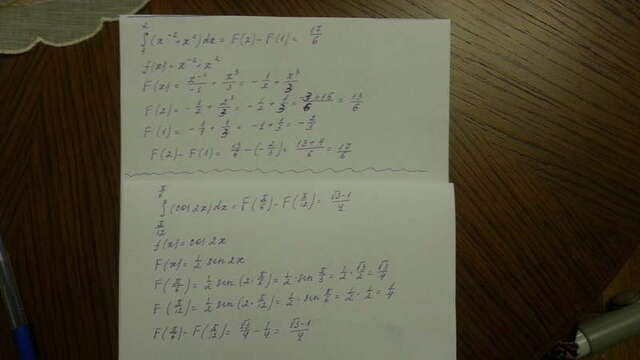 ∫₁² (x⁻²+x²)dx = F(2)-F(1) = 17/6
f(x) = x⁻²+x²
F(x) = x⁻¹/-1 + x³/3 = -1/x + x³/3
F(2) = -1/2 + 2³/3 = -1/2 + 8/3 = -3+16/6 = 13/6
F(1) = -1/1 + 1/3 = -1+1/3 = -2/3
F(2)-F(1) = 13/6 - (-2/3) = 13+4/6 = 17/6
∫ π/12 π/6 (cos2x)dx = F(π/6)-F(π/12) = √3-1/4
f(x) = cos2x
F(x) = 1/2 sin2x
F(π/6) = 1/2 sin(2·π/6) = 1/2·sin π/3 = 1/2·√3/2 = √3/4
F(π/12) = 1/2 sin(2·π/12) = 1/2·sin π/6 = 1/2·1/2 = 1/4
F(π/6)-F(π/12) = √3/4 - 1/4 = √3-1/4